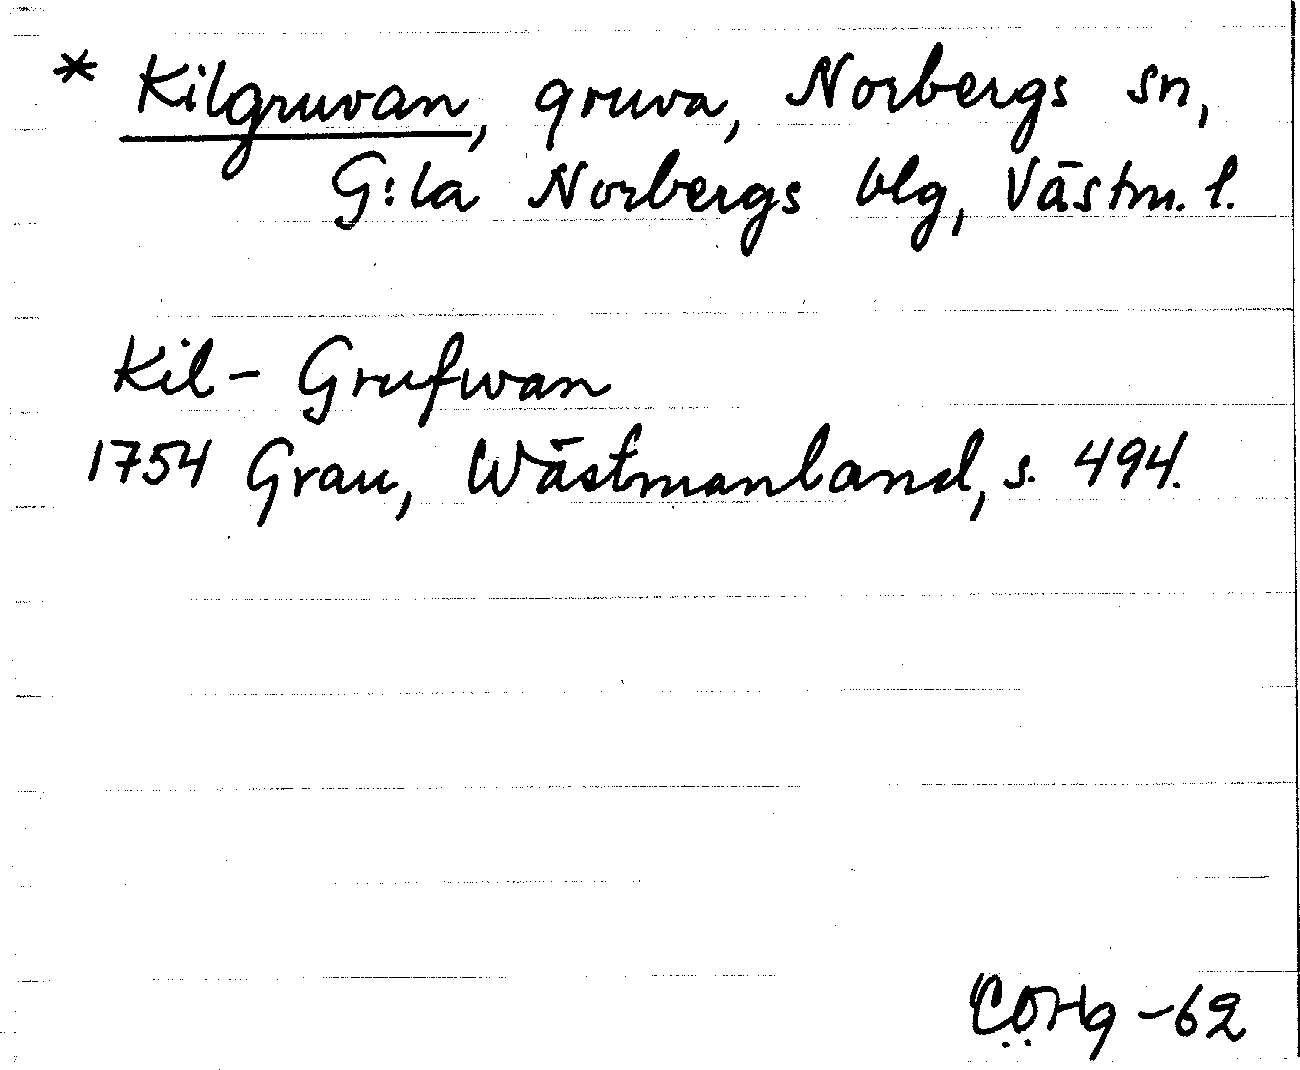 * Kilgruvan, gruva, Norbergs sn,
G:la Norbergs blg, Västm. l.
Kil- Grufwan
1754 Grau, Wästmanland, s. 494.
CÖHg -62